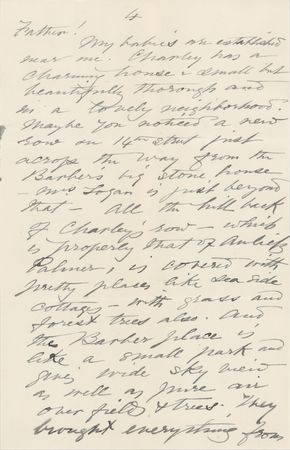 4
Father!
My babies are established
near me. Charley has a
charming house - small but
beautifully thorough and
in a lovely neighborhood.
Maybe you noticed a new
row on 14th street just
across the way from the
Barber's big stone house
- Mrs Logan is just beyond
that - all the hill back
of Charley's row - which
is properly that of
Palmer, is covered with
pretty places like sea side
cottages - with grass and
forest trees also. And
the Barber place is
like a small park and
gives wide sky view
as well as pure air
over field & trees. They
brought everything from